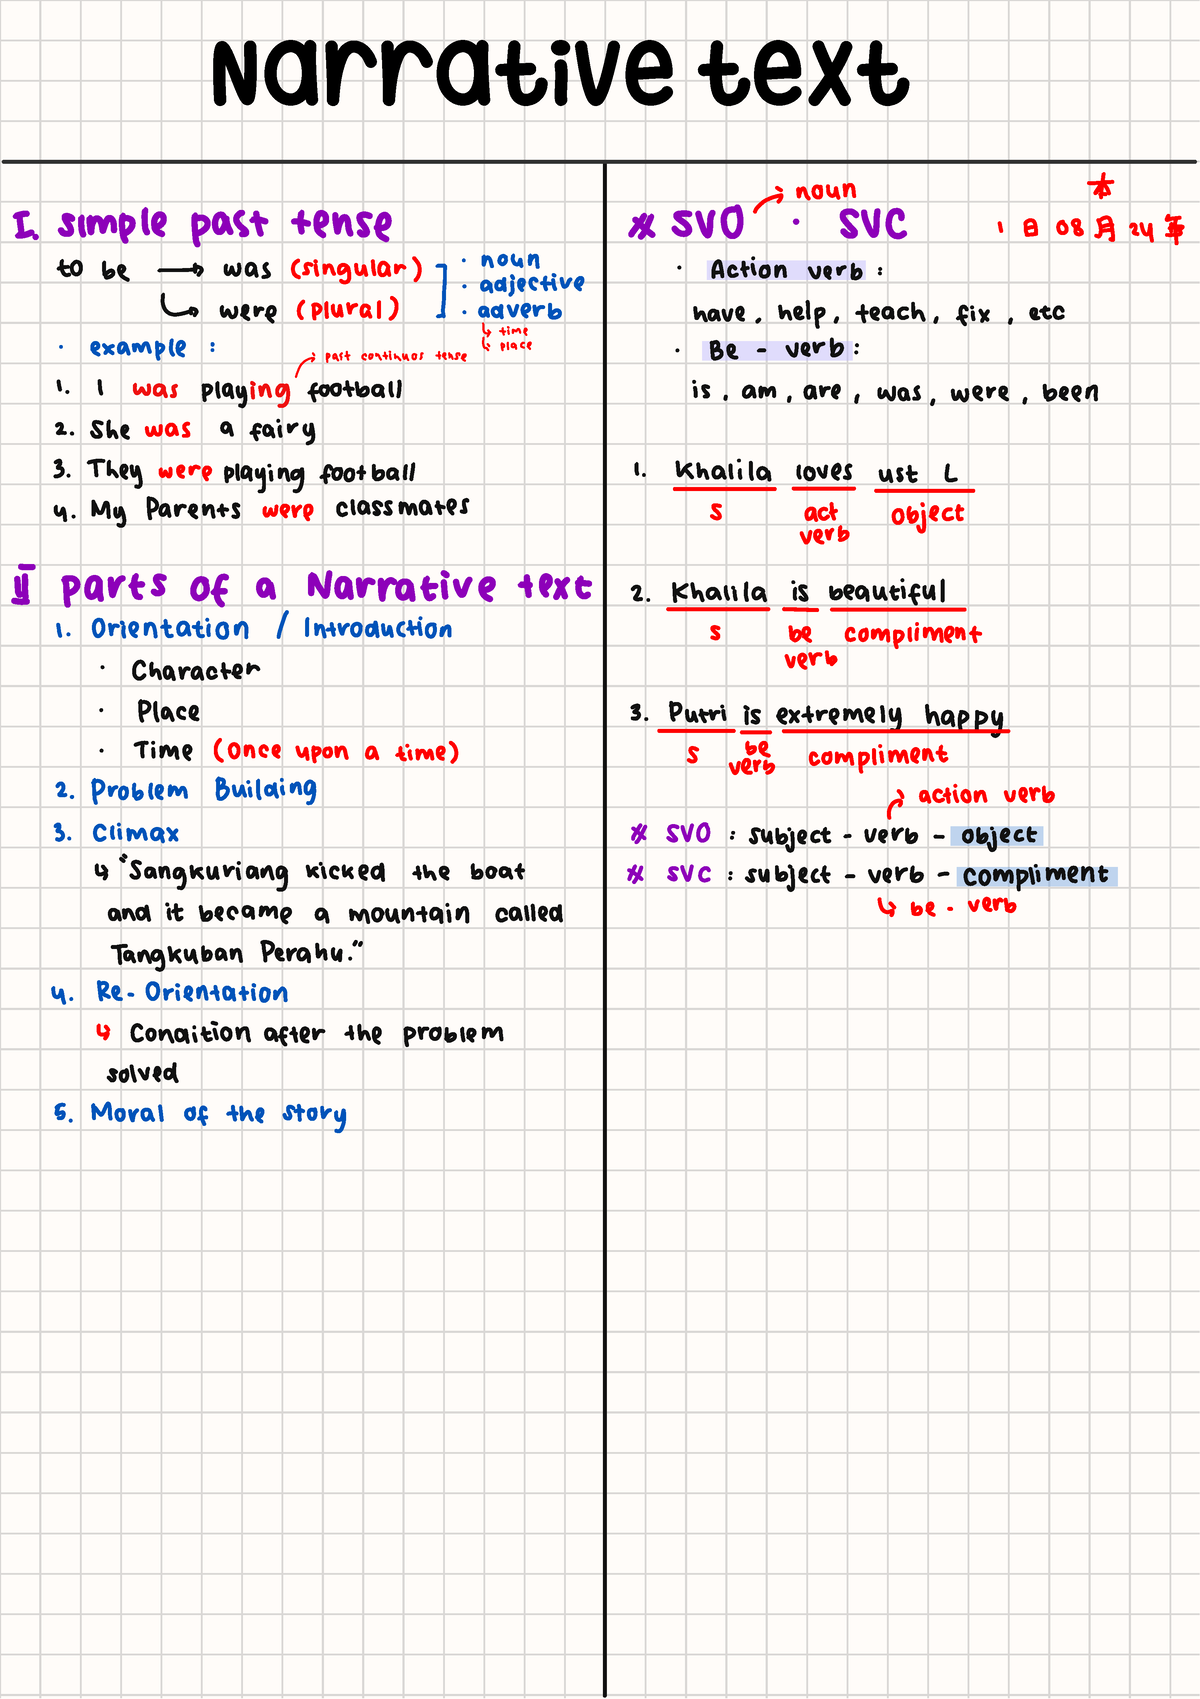 Narrative text
I. simple past tense
to be → was (singular)
↳ were (plural)
· noun
· adjective
· adverb
↳ time
↳ place
· example :
past continuos tense
1. I was playing football
2. She was a fairy
3. They were playing football
4. My Parents were classmates
II parts of a Narrative text
1. Orientation / Introduction
· Character
· Place
· Time (Once upon a time)
2. Problem Building
3. Climax
↳ "Sangkuriang kicked the boat
and it became a mountain called
Tangkuban Perahu."
4. Re-Orientation
↳ Condition after the problem
solved
5. Moral of the story
noun
※ SVO · SVC
木
1 日 08 月 24 年
· Action verb :
have, help, teach, fix, etc
· Be - verb :
is, am, are, was, were, been
1. Khalila loves ust L
s act object
verb
2. Khalila is beautiful
s be compliment
verb
3. Putri is extremely happy
s be compliment
verb
action verb
※ SVO : subject - verb - object
※ SVC : subject - verb - compliment
↳ be - verb